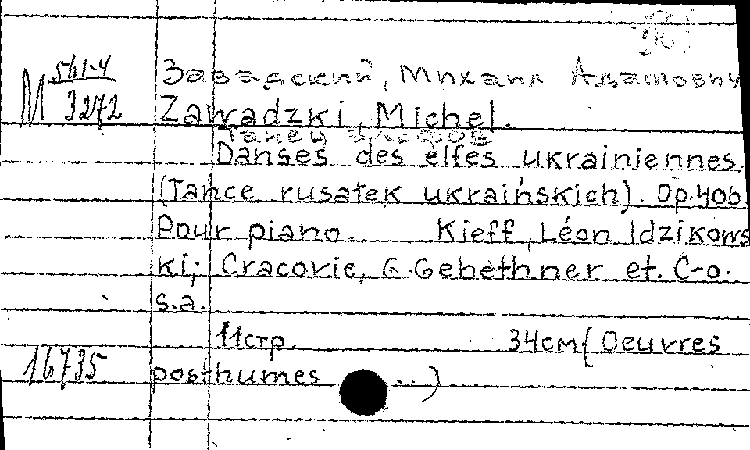 М 561-4
3272
Завадский, Михаил Адамович
Zawadzki, Michel.
Танец эльфов
Danses des elfes ukrainiennes.
(Tance rusałek ukraińskich). Op.40b
Pour piano. Kieff, Léon Idzikows
ki; Cracovie, G. Gebethner et. C-o.
s.a.
11стр. 34см (Oeuvres
16735 posthumes ...)